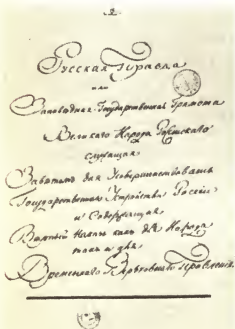 2.
Русская Правда
или
Заповедная Государственная Грамота
Великаго Народа Россійскаго
служащая
Заветомъ для Усовершенствованія
Государственнаго Устройства Россіи
и Содержащая
Верный Наказъ какъ для Народа
такъ и для
Временнаго Верховнаго Правленія